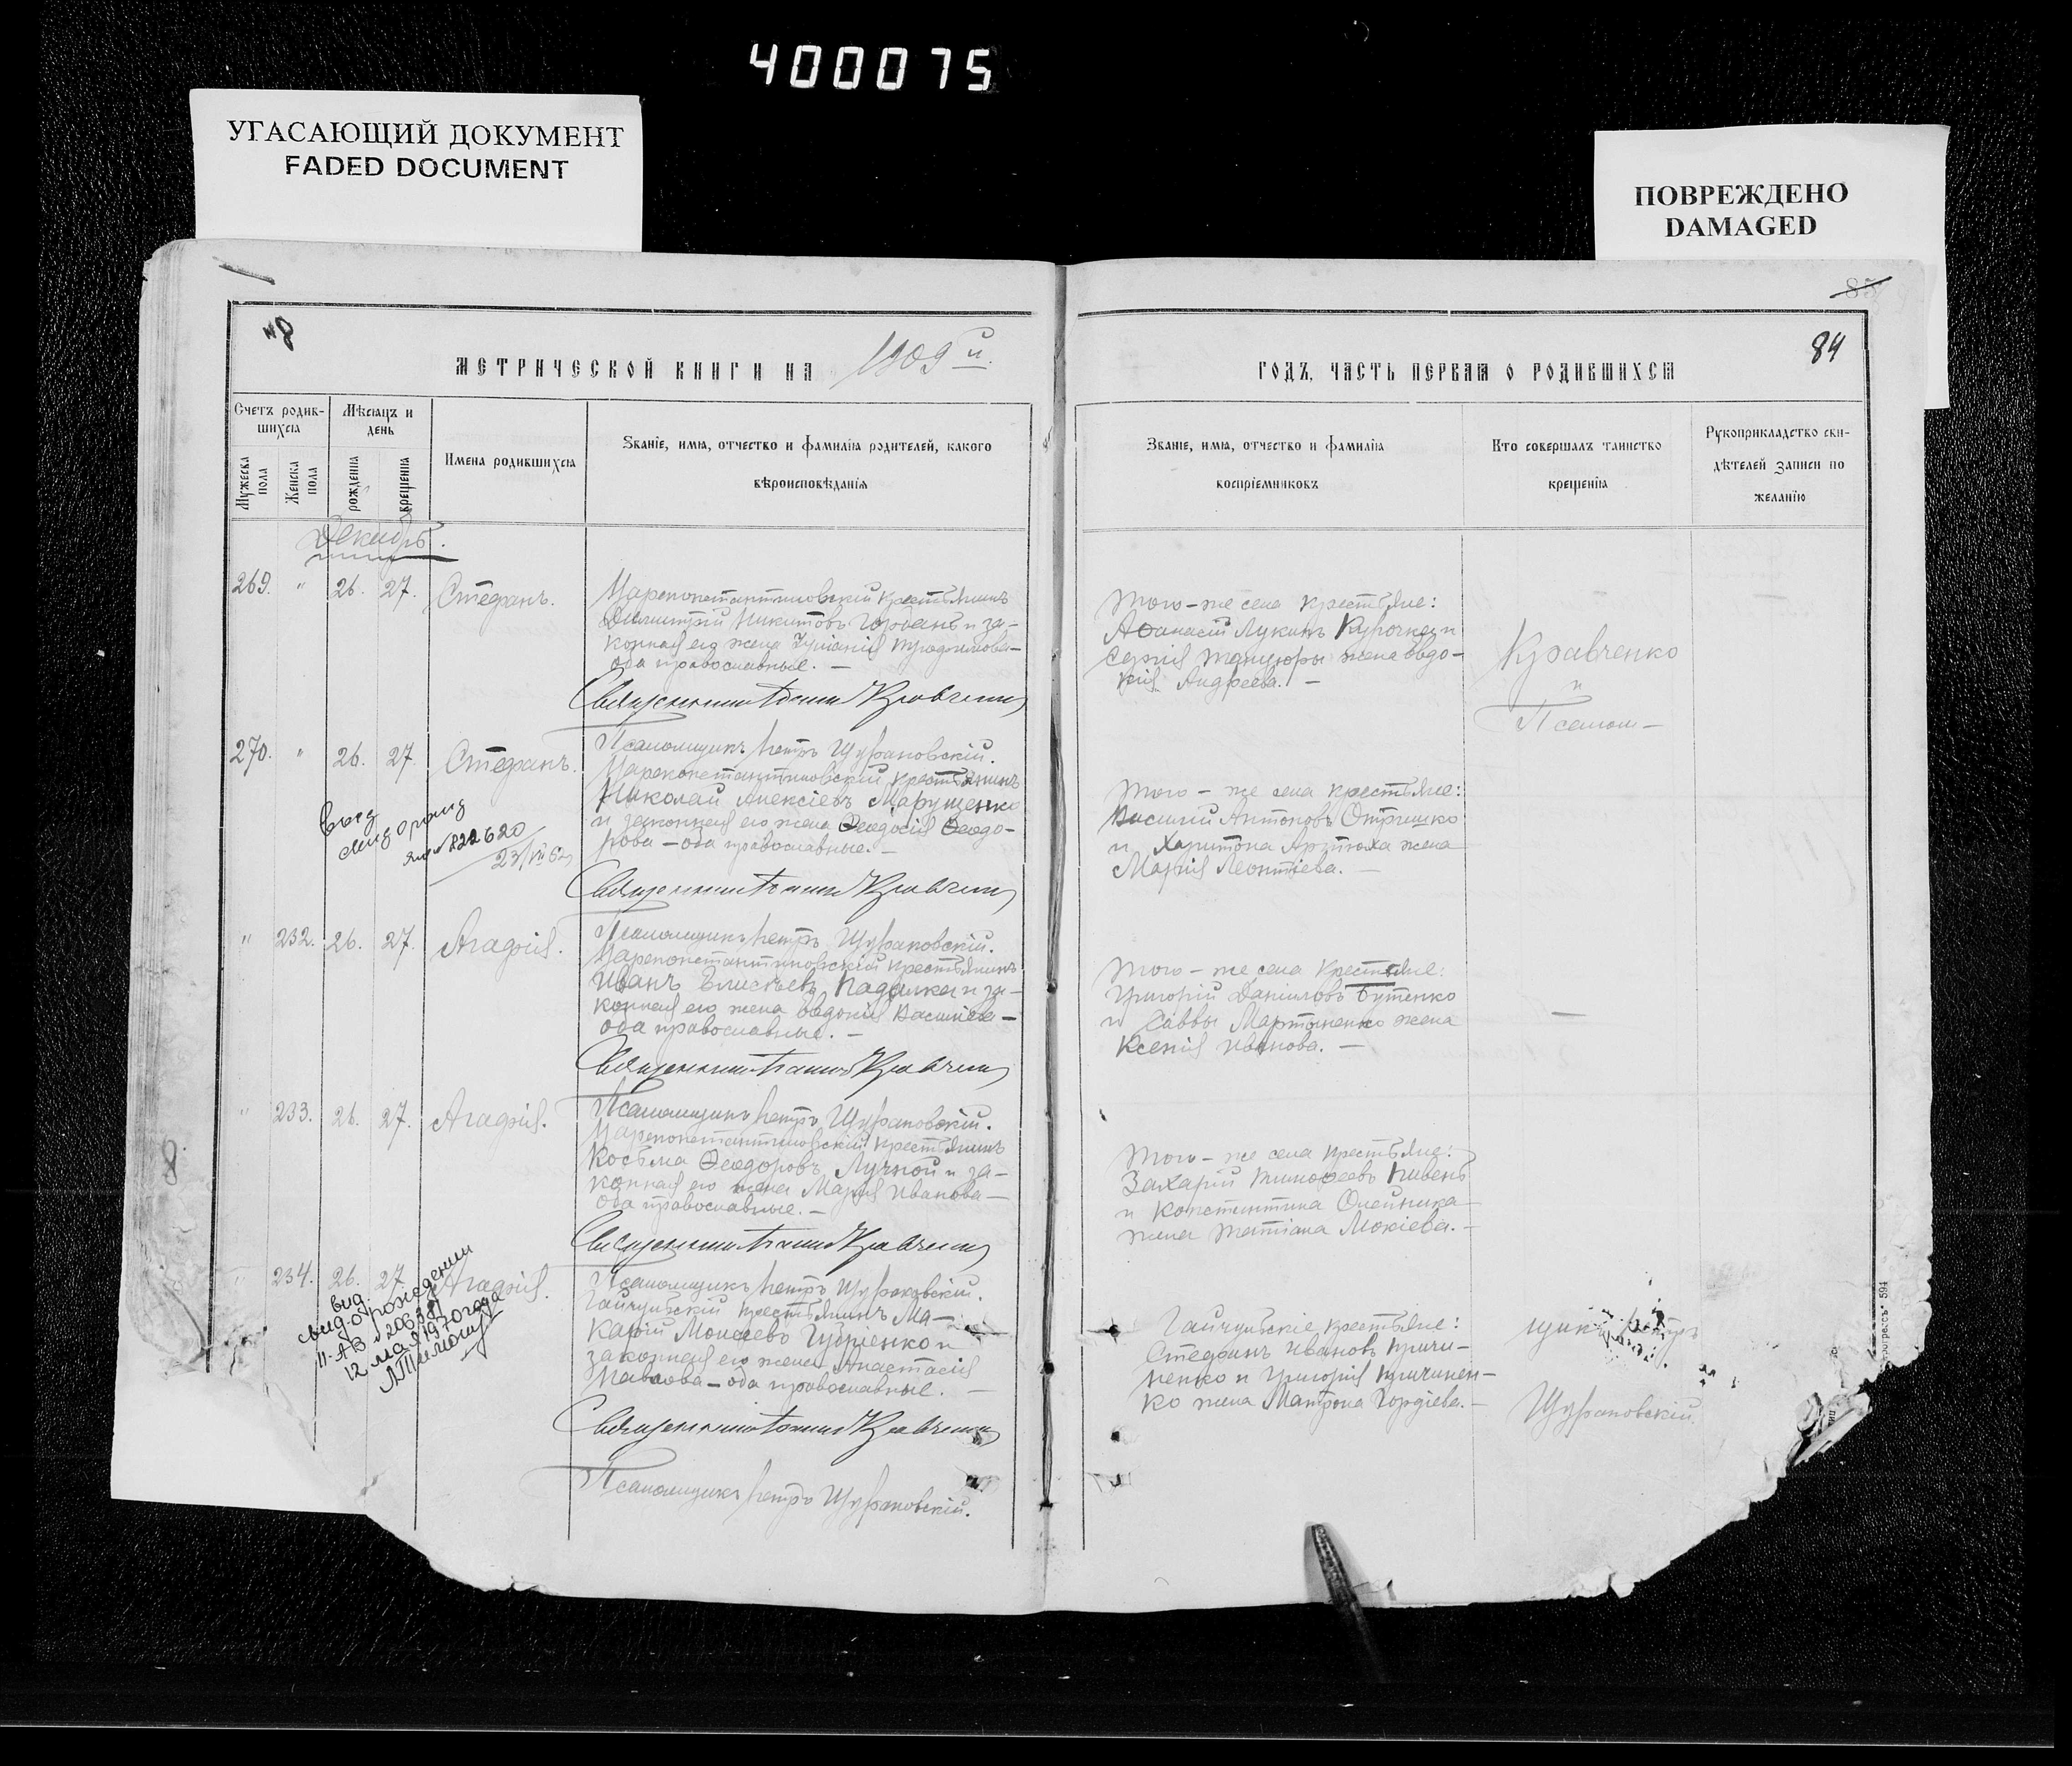 400075
УГАСАЮЩИЙ ДОКУМЕНТ
FADED DOCUMENT
ПОВРЕЖДЕНО
DAMAGED
85
84
МЕТРИЧЕСКОЙ КНИГИ НА 1909 й.
ГОДЪ, ЧАСТЬ ПЕРВАЯ О РОДИВШИХСЯ
Счетъ родив-
шихся
Мужеска пола
Женска пола
Мѣсяцъ и
день
рожденія
крещенія
Имена родившихся
Званіе, имя, отчество и фамилія родителей, какого
вѣроисповѣданія
Званіе, имя, отчество и фамилія
воспріемниковъ
Кто совершалъ таинство
крещенія
Рукоприкладство сви-
дѣтелей записи по
желанію
Декабрь.
269. " 26. 27. Стефанъ.
Цареконстантиновскій крестьянинъ
Димитрій Никитовъ Горбань и за-
конная его жена Трофимова-
оба православные. —
Священникъ Іоаннъ Кравченко
Псаломщикъ Петръ Щурановскій.
Того-же села крестьяне:
Аѳанасій Лукинъ Курочка и
Сергія жена Евдо-
кія Андреева. —
Кравченко
и
Псалом-
270. " 26. 27. Стефанъ.
Цареконстантиновскій крестьянинъ
Николай Алексіевъ Марущенко
и законная его жена Ѳеодосія Ѳеодо-
рова — оба православные. —
Священникъ Іоаннъ Кравченко
Псаломщикъ Петръ Щурановскій.
Того-же села крестьяне:
Василій Антоновъ Отришко
и Харитона Артюха жена
Марія Леонтіева. —
№ 822620
23/VII 52
" 232. 26. 27. Агафія.
Цареконстантиновскій крестьянинъ
Иванъ Елисѣевъ Падалка и за-
конная его жена Евдокія Василіева —
оба православные. —
Священникъ Іоаннъ Кравченко
Псаломщикъ Петръ Щурановскій.
Того-же села крестьяне:
Григорій Даніиловъ Бутенко
и Саввы Мартыненко жена
Ксенія Иванова. —
" 233. 26. 27. Агафія.
Цареконстантиновскій крестьянинъ
Косьма Ѳеодоровъ Лучной и за-
конная его жена Марія Иванова —
оба православные. —
Священникъ Іоаннъ Кравченко
Псаломщикъ Петръ Щурановскій.
Того-же села крестьяне:
Захарій Тимоѳеевъ Пивень
и Константина Олейника
жена Татіана Мокіева. —
" 234. 26. 27. Агафія.
Гайчульскій крестьянинъ Ма-
карій Моисеевъ и
законная его жена Анастасія
Павлова — оба православные. —
Священникъ Іоаннъ Кравченко
Псаломщикъ Петръ Щурановскій.
Гайчульскіе крестьяне:
Стефанъ Ивановъ Кричи-
ненко и Григорія Кричинен-
ко жена Матрона Гордіева. —
щикъ Петръ
Щурановскій.
выд.
свид. о рождении
II-АВ №206381
12 мая 1970 года
8